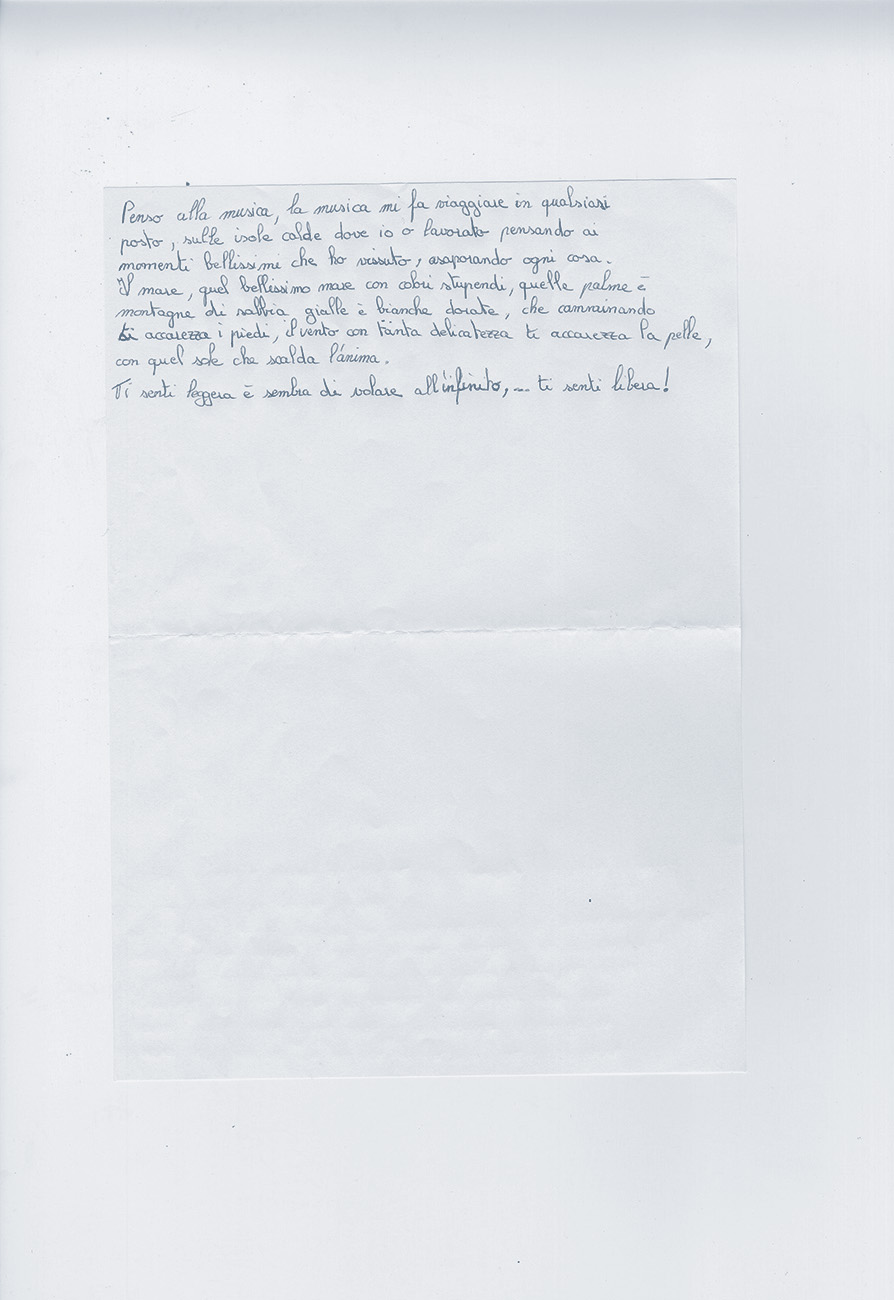 Penso alla musica, la musica mi fa viaggiare in qualsiasi
posto, sulle isole calde dove io o lavorato pensando ai
momenti bellissimi che ho vissuto, asaporando ogni cosa.
Il mare, quel bellissimo mare con colori stupendi, quelle palme è
montagne di sabbia gialle è bianche dorate, che camminando
ti accarezza i piedi, il vento con tanta delicatezza ti accarezza la pelle,
con quel sole che scalda l'anima.
Ti senti leggera è sembra di volare all'infinito, ... ti senti libera!